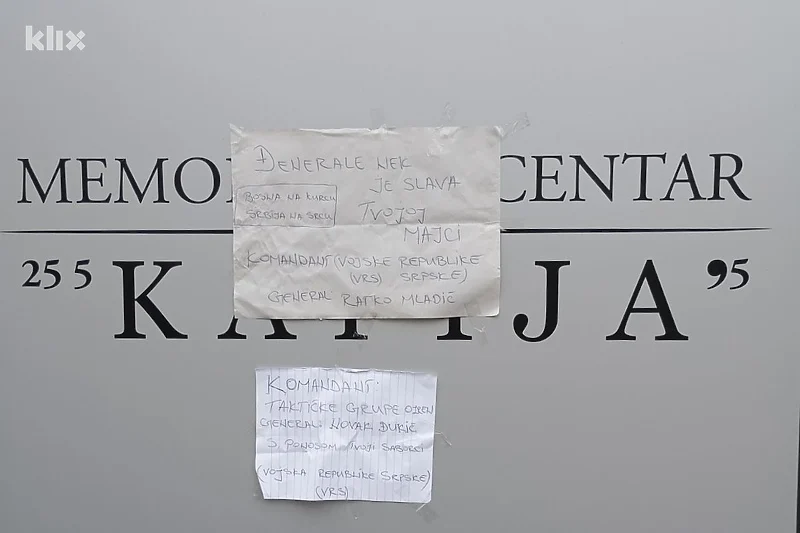 klix
MEMO CENTAR
25 5 KAPIJA 95
ĐENERALE NEK
JE SLAVA
BOSNA NA KURCU
SRBIJA NA SRCU
TVOJOJ
MAJCI
KOMANDANT (VOJSKE REPUBLIKE
(VRS) SRPSKE)
GENERAL RATKO MLADIĆ
KOMANDANT:
TAKTIČKE GRUPE OZREN
GENERAL: NOVAK ĐUKIĆ
S PONOSOM TVOJI SABORCI
(VOJSKA REPUBLIKE SRPSKE)
(VRS)